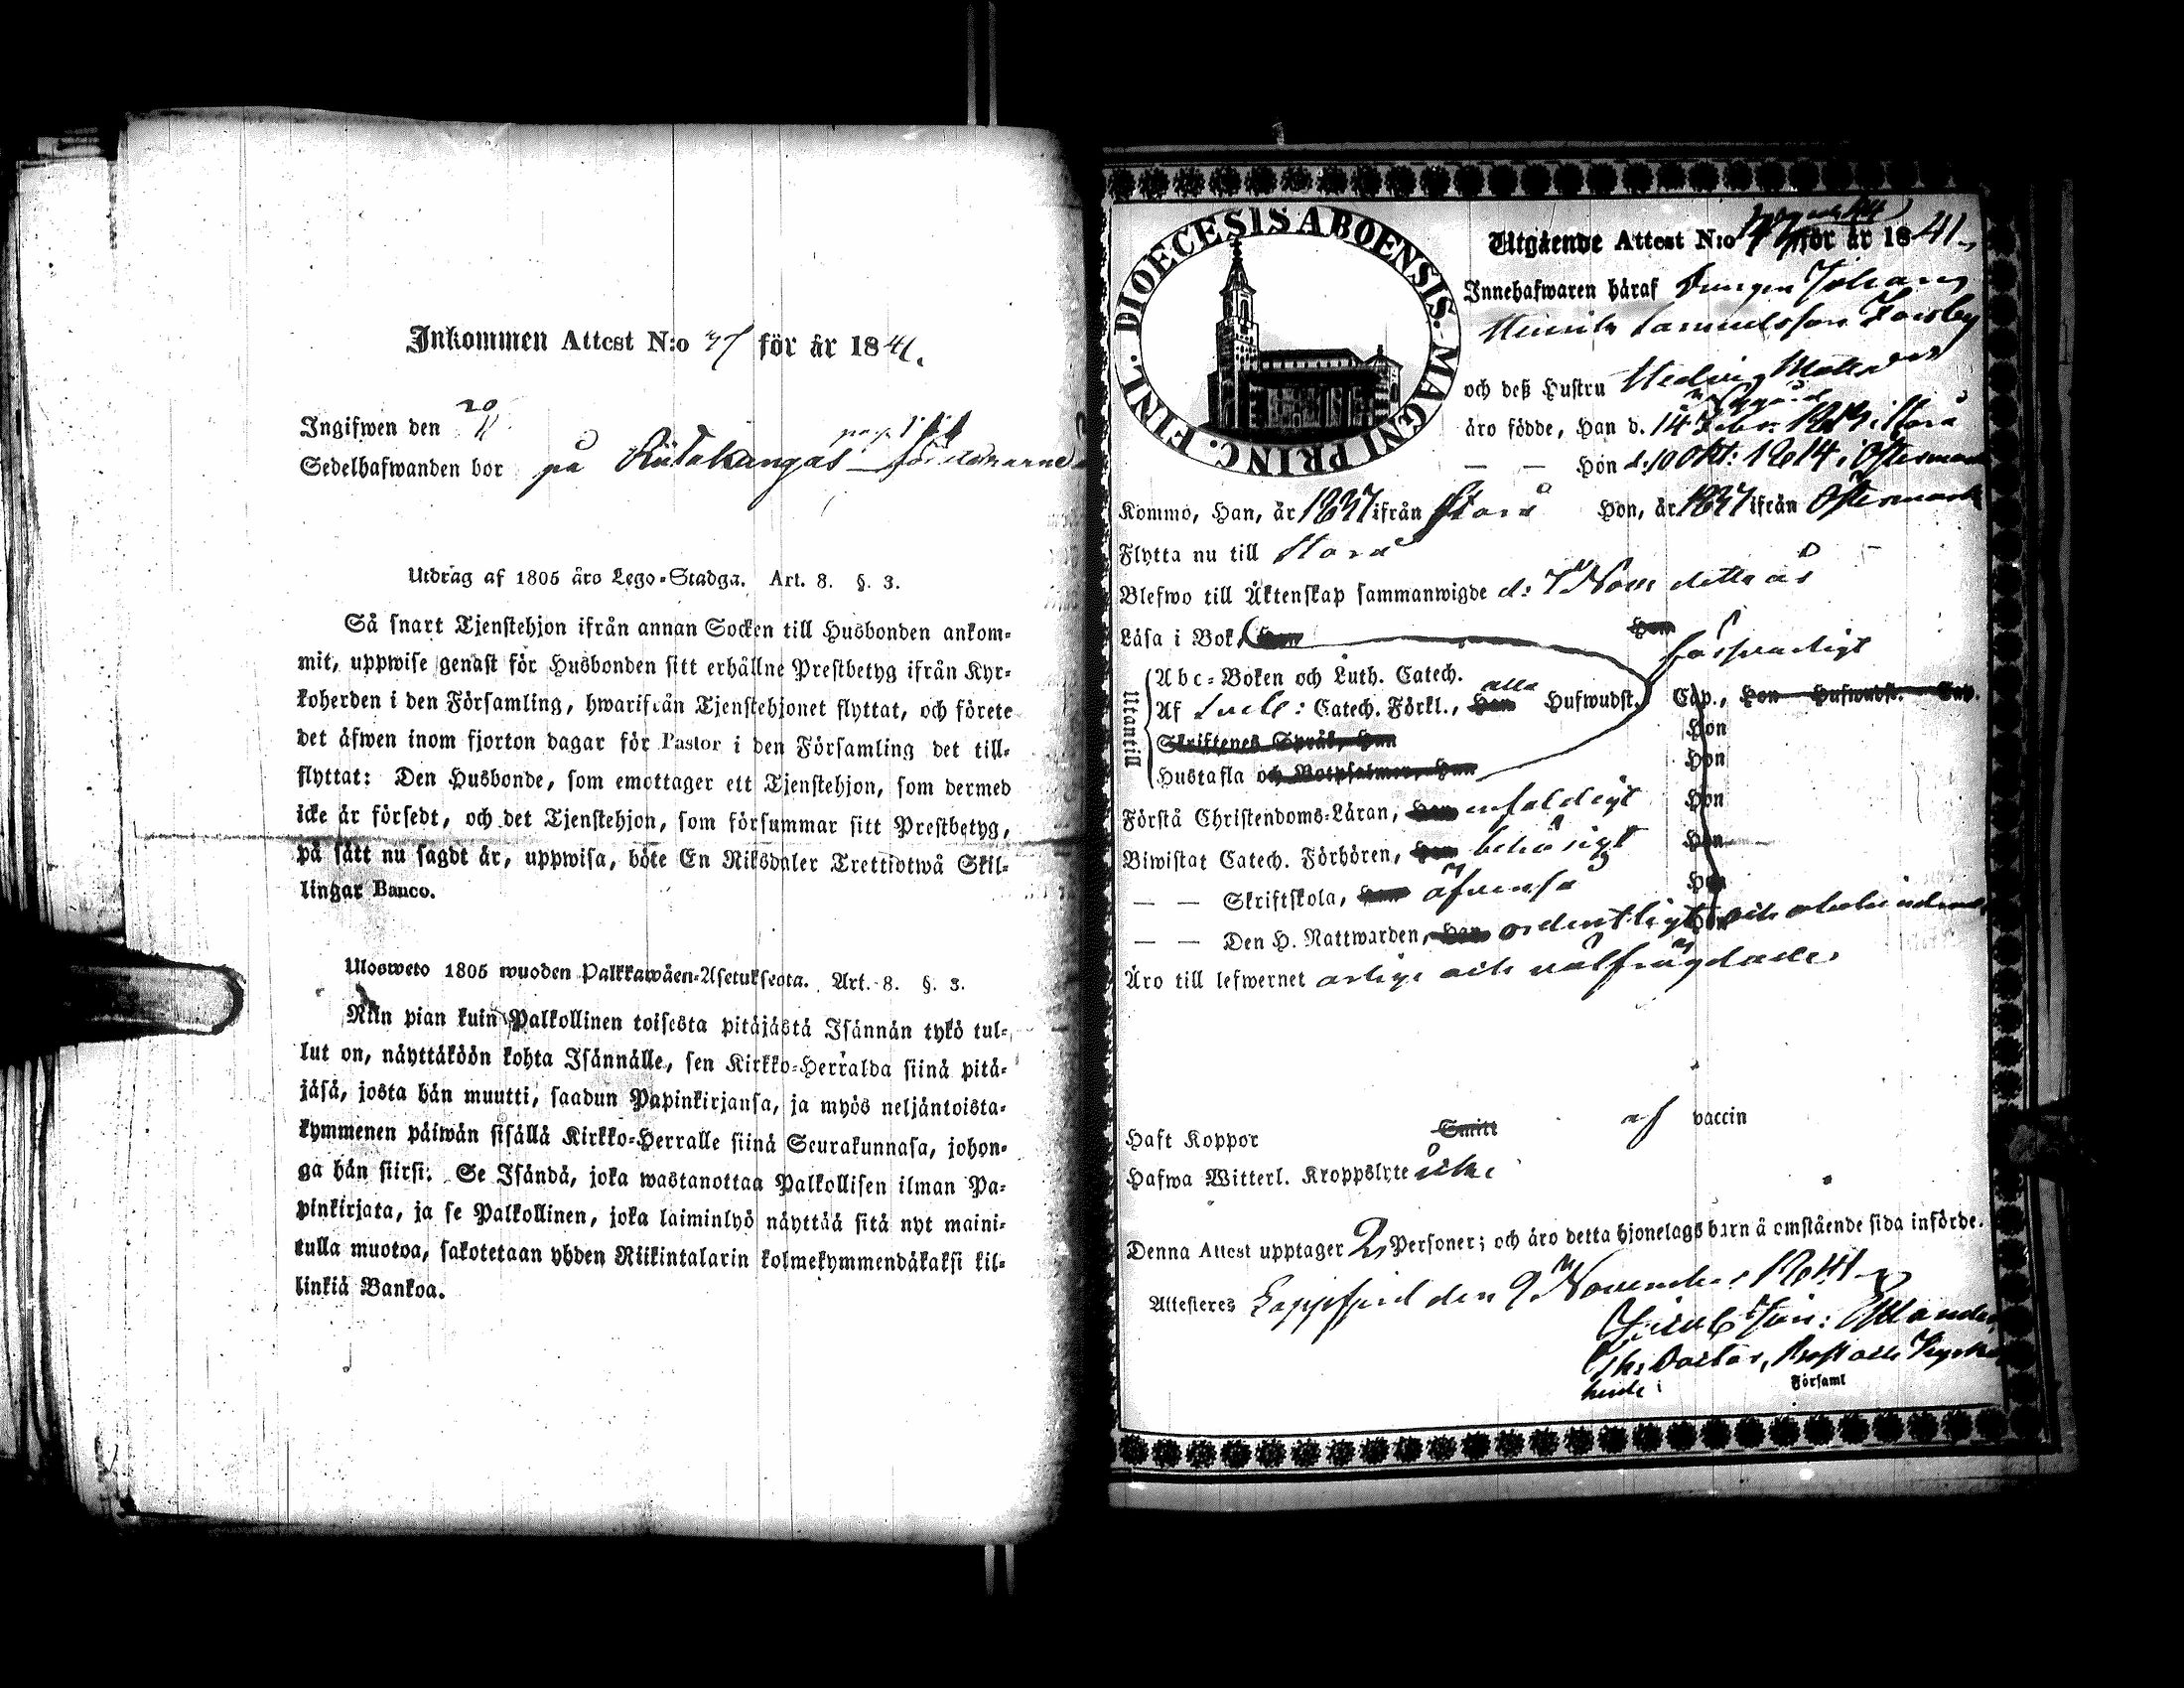 Inkommen Attest N:o 37 för år 1841.
Ingifwen den 20
Sedelhafwanden bor på Riitakangas
Utdrag af 1805 års Lego-Stadga. Art. 8. §. 3.
Så snart Tjenstehjon ifrån annan Socken till Husbonden ankom-
mit, uppwise genast för Husbonden sitt erhållne Prestbetyg ifrån Kyr-
koherden i den Församling, hwarifrån Tjenstehjonet flyttat, och förete
det äfwen inom fjorton dagar för Pastor i den Församling det till-
flyttat: Den Husbonde, som emottager ett Tjenstehjon, som dermed
icke är försedt, och det Tjenstehjon, som försummar sitt Prestbetyg,
på sätt nu sagdt är, uppwisa, böte En Riksdaler Trettiotwå Skil-
lingar Banco.
Ulosweto 1805 wuoden Palkkawäen-Asetuksesta. Art. 8. §. 3.
Niin pian kuin Palkollinen toisesta pitäjästä Isännän tykö tul-
lut on, näyttäköön kohta Isännälle, sen Kirkko-Herralda siinä pitä-
jäsä, josta hän muutti, saadun Papinkirjansa, ja myös neljäntoista-
kymmenen päiwän sisällä Kirkko-Herralle siinä Seurakunnasa, johon-
ga hän siirsi: Se Isändä, joka wastanottaa Palkollisen ilman Pa-
pinkirjata, ja se Palkollinen, joka laiminlyö näyttää sitä nyt maini-
tulla muotoa, sakotetaan yhden Riikintalarin kolmekymmendäkaksi kil-
linkiä Bankoa.
DIOECESIS ABOENSIS. MAGNI PRINC. FINL.
Utgående Attest N:o för år 1841.
Innehafwaren häraf Drängen Johan
Henrik Samuelsson
och deß Hustru Hedvig Matts
äro födde, Han d. 14 Febr. 1819 i Storå
— — Hon d. 10 Okt: 1814 i Östermark
Kommo, Han, år 1837 ifrån Storå Hon, år 1837 ifrån Östermark
Flytta nu till Storå
Blefwo till Äktenskap sammanwigde d: 7 Nov detta år
Läsa i Bok, Han Hon försvarligt
Utantill
Abc-Boken och Luth. Catech.
Af Catech. Förkl., Han alla Hufwudst. Cap., Hon Hufwudst. Cap.
Skriftenes Språk, Han Hon
Hustafla och Botpsalmer, Han Hon
Förstå Christendoms-Läran, Han enfaldigt Hon
Biwistat Catech. Förhören, Han behörigt Hon
— — Skriftskola, Han äfvenså Hon
— — Den H. Nattwarden, Han ordentligt och Hon
Äro till lefwernet ärlige och välfrägdade
Haft Koppor Smitt af vaccin
Hafwa Witterl. Kroppslyte icke
Denna Attest upptager 2 Personer; och äro detta hjonelags barn å omstående sida införde.
Attesteres Lappfjerd den 9 November 1841
Th: Doctor, Prost och Kyrko
herde i Församl